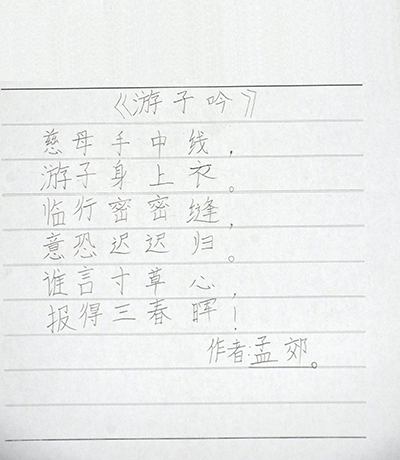 《游子吟》
慈母手中线，
游子身上衣。
临行密密缝，
意恐迟迟归。
谁言寸草心，
报得三春晖！
作者:孟郊。